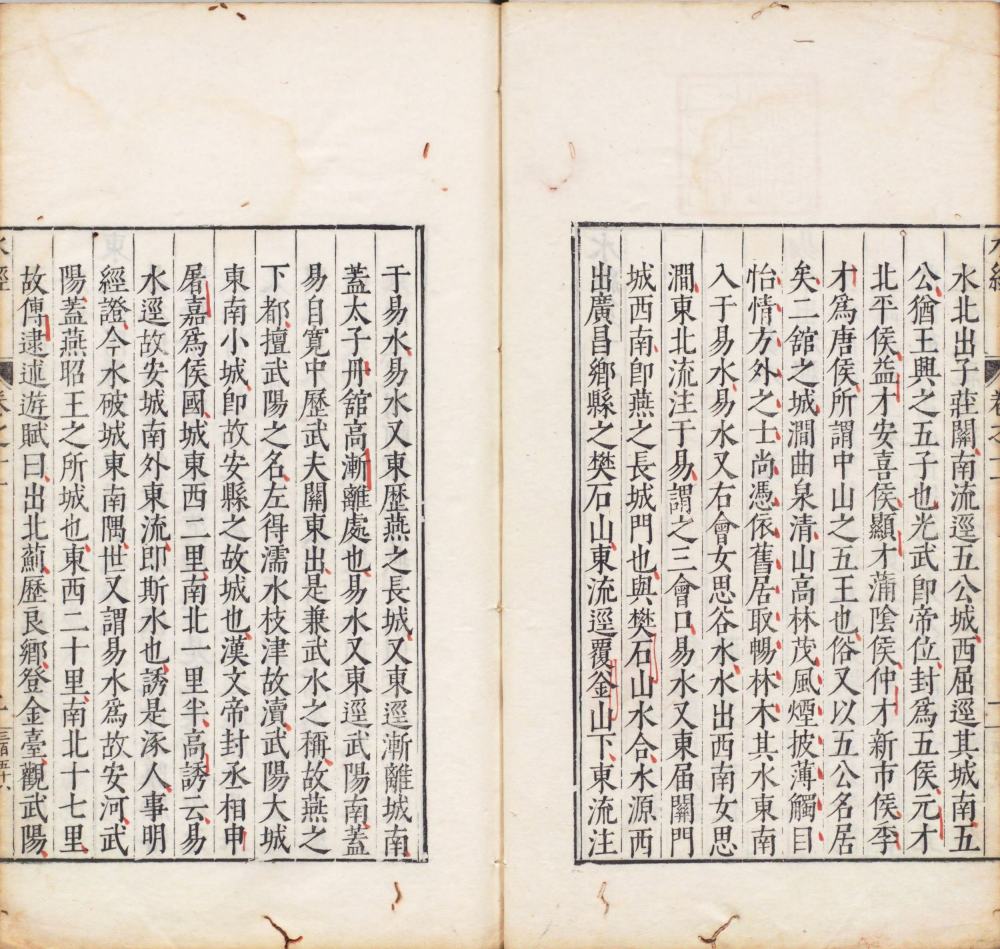 水北出子莊關南流逕五公城西屈逕其城南五
公猶王興之五子也光武卽帝位封爲五侯元才
北平侯益才安喜侯顯才蒲陰侯仲才新市侯季
才爲唐侯所謂中山之五王也俗又以五公名居
矣二舘之城澗曲泉清山高林茂風煙披薄觸目
怡情方外之士尚憑依舊居取暢林木其水東南
入于易水易水又右會女思谷水水出西南女思
澗東北流注于易謂之三會口易水又東届關門
城西南卽燕之長城門也與樊石山水合水源西
出廣昌鄉縣之樊石山東流逕覆釜山下東流注
于易水易水又東歷燕之長城又東逕漸離城南
蓋太子丹舘高漸離處也易水又東逕武陽南蓋
易自寛中歷武夫關東出是兼武水之稱故燕之
下都擅武陽之名左得濡水枝津故瀆武陽大城
東南小城卽故安縣之故城也漢文帝封丞相申
屠嘉爲侯國城東西二里南北一里半高誘云易
水逕故安城南外東流卽斯水也誘是涿人事明
經證今水破城東南隅世又謂易水爲故安河武
陽蓋燕昭王之所城也東西二十里南北十七里
故傅逮述遊賦曰出北薊歷良鄉登金臺觀武陽
水經
卷之十